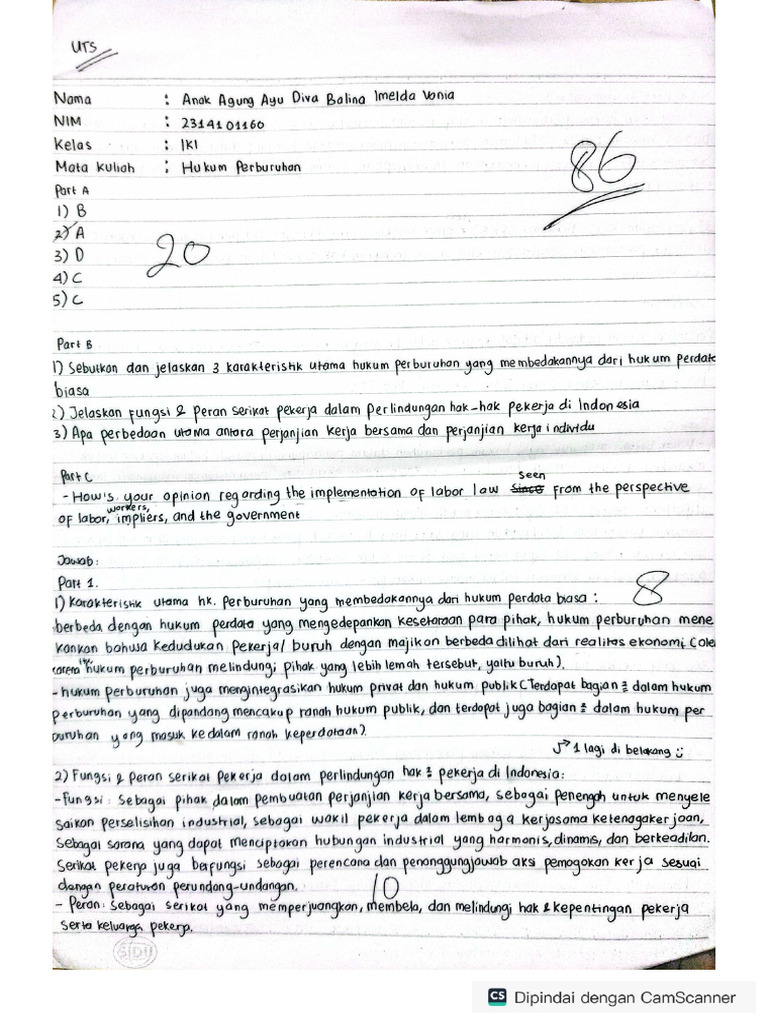 UTS
Nama : Anak Agung Ayu Diva Balina Imelda Vonia
NIM : 2314101160
Kelas : IKI
Mata Kuliah : Hukum Perburuhan
86
Part A
1) B
2) A
3) D
4) C
5) C
20
Part B
1) Sebutkan dan jelaskan 3 karakteristik utama hukum perburuhan yang membedakannya dari hukum perdata
biasa
2) Jelaskan fungsi & peran serikat pekerja dalam perlindungan hak-hak pekerja di Indonesia
3) Apa perbedaan utama antara perjanjian kerja bersama dan perjanjian kerja individu
Part C
- How's your opinion regarding the implementation of labor law seen from the perspective
of labor, workers, impliers, and the government
Jawab :
Part 1.
8
1) Karakteristik utama hk. perburuhan yang membedakannya dari hukum perdata biasa :
berbeda dengan hukum perdata yang mengedepankan kesetaraan para pihak, hukum perburuhan mene
kankan bahwa kedudukan pekerja/ buruh dengan majikan berbeda dilihat dari realitas ekonomi (ole
karena itu, hukum perburuhan melindungi pihak yang lebih lemah tersebut, yaitu buruh).
- hukum perburuhan juga mengintegrasikan hukum privat dan hukum publik (Terdapat bagian² dalam hukum
perburuhan yang dipandang mencakup ranah hukum publik, dan terdapat juga bagian² dalam hukum per
buruhan yang masuk ke dalam ranah keperdataan).
1 lagi di belakang :)
2) Fungsi & peran serikat pekerja dalam perlindungan hak² pekerja di Indonesia:
- Fungsi : Sebagai pihak dalam pembuatan perjanjian kerja bersama, sebagai penengah untuk menyele
saikan perselisihan industrial, sebagai wakil pekerja dalam lembaga kerjasama ketenagakerjaan,
sebagai sarana yang dapat menciptakan hubungan industrial yang harmonis, dinamis, dan berkeadilan.
Serikat pekerja juga berfungsi sebagai perencana dan penanggungjawab aksi pemogokan kerja sesuai
dengan peraturan perundang-undangan.
10
- Peran : Sebagai serikat yang memperjuangkan, membela, dan melindungi hak & kepentingan pekerja
serta keluarga pekerja.
SIDU
CS Dipindai dengan CamScanner